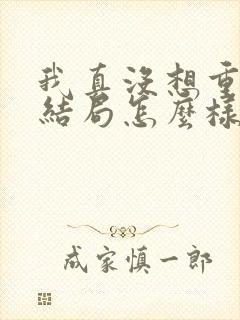 我真沒想重
結局怎麼樣
成家慎一郎